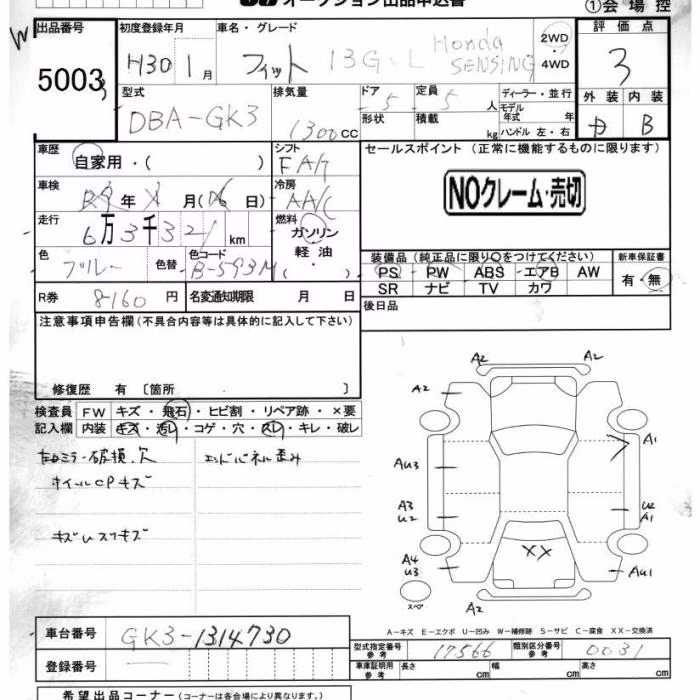 オークション出品申込書
①会場控
出品番号
5003
初度登録年月
H30 1月
車名・グレード
フィット 13G・L Honda SENSING
2WD
4WD
評価点
3
外装 内装
B
型式
DBA-GK3
排気量
1300cc
ドア 5
定員 5人
形状
積載 kg
ディーラー・並行
モデル年式 年式
ハンドル 左・右
車歴
自家用・( )
シフト
FAT
車検
年 月( 日)
冷房
AAC
走行
6万3千321km
燃料
ガソリン
軽油
( ・ )
色
ブルー
色替
色コード
B-593M
R券 8160円
名変通知期限 月 日
セールスポイント (正常に機能するものに限ります)
NOクレーム・売切
装備品(純正品に限り○をつけてください)
PS PW ABS エアB AW
SR ナビ TV カワ
新車保証書
有・無
後日品
注意事項申告欄(不具合内容等は具体的に記入して下さい)
修復歴 有 〔箇所 〕
検査員記入欄
FW キズ・飛石・ヒビ割・リペア跡・×要
内装 キズ・汚レ・コゲ・穴・スレ・キレ・破レ
左ロミラー破損、欠
エンドパネル歪み
ホイルCPキズ
キズUスリキズ
A2 A2
A2
A1
AU3
A3 U2
U2 A1
A4 U3
XX
AU1
スペア
A2
A-キズ E-エクボ U-凹み W-補修跡 S-サビ C-腐食 XX-交換済
車台番号
GK3-1314730
登録番号
型式指定番号 参考 17566
類別区分番号 参考 0031
車庫証明用 参考 長さ cm 幅 cm 高さ cm
希望出品コーナー(コーナーは各会場により異なります。)